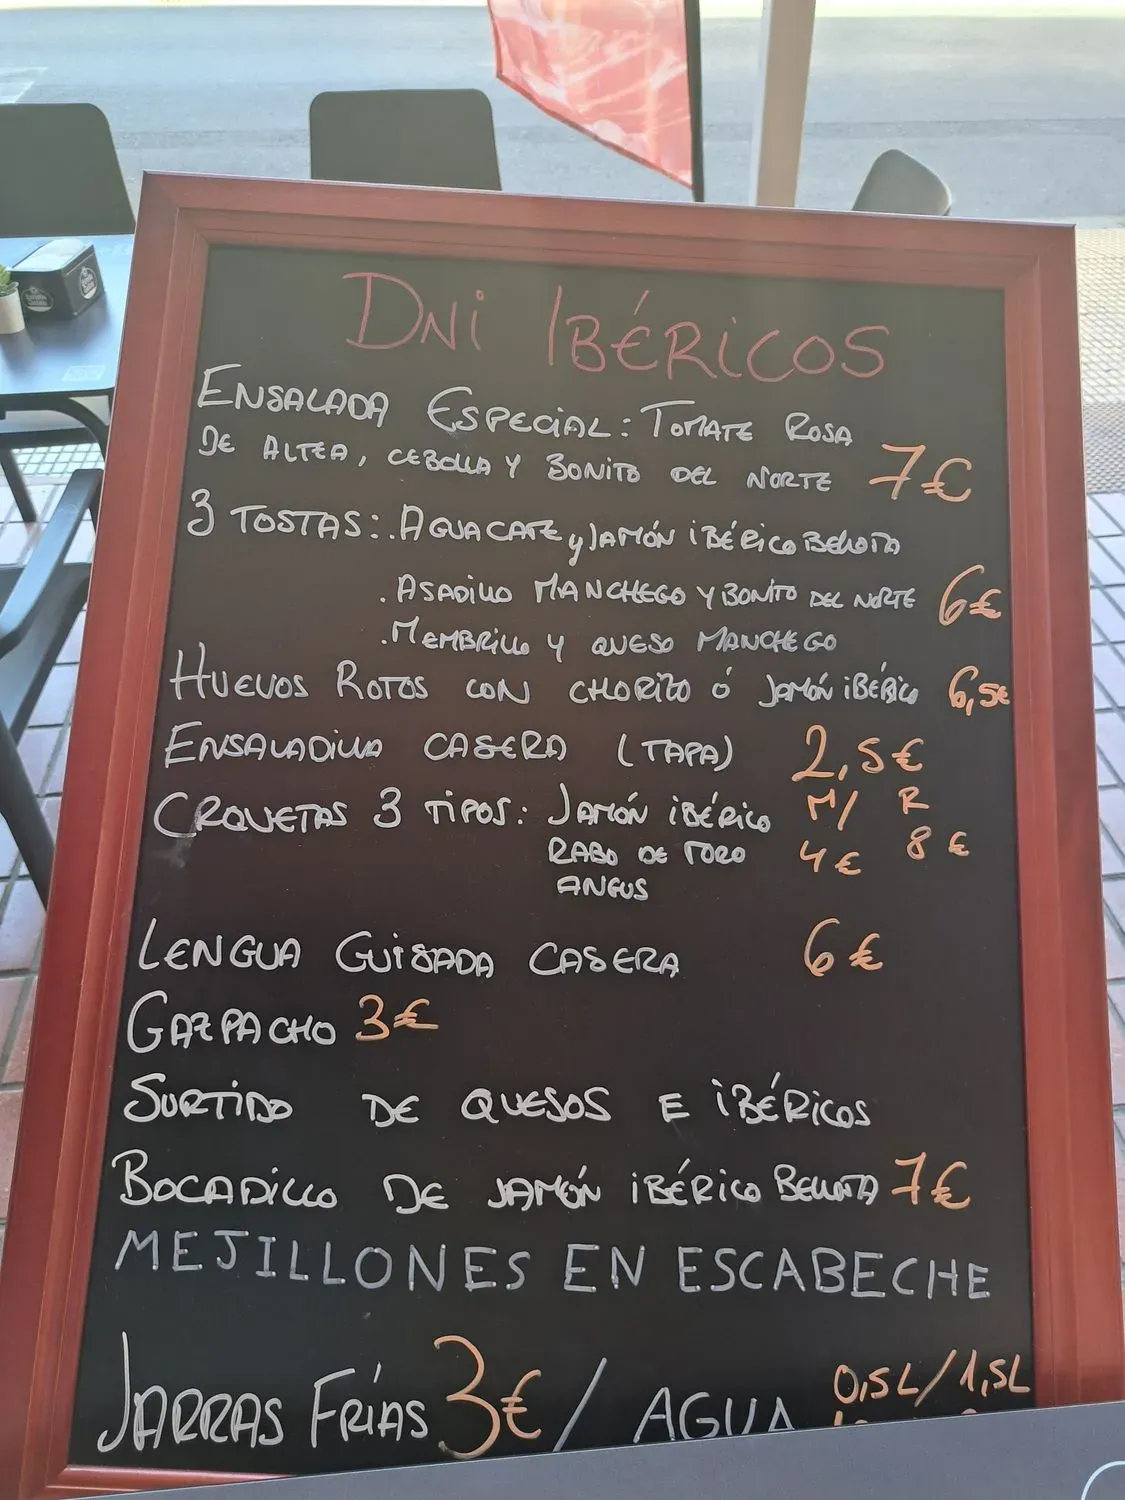 DNi IBÉRiCOS
ENSALADA ESPECiAL: TOMATE ROSA
DE ALTEA, CEBOLLA Y BONITO DEL NORTE 7€
3 TOSTAS: . AGUACATE y JAMÓN iBÉRICO BELLOTA
. ASADILLO MANCHEGO Y BONITO DEL NORTE 6€
. MEMBRILLO Y QUESO MANCHEGO
HUEVOS ROTOS CON CHORIZO Ó JAMÓN iBÉRICO 6,5€
ENSALADILLA CASERA (TAPA) 2,5€
CROQUETAS 3 TiPOS: JAMÓN iBÉRICO M/ R
RABO DE TORO 4€ 8€
ANGUS
LENGUA GUiSADA CASERA 6€
GAZPACHO 3€
SURTIDO DE QUESOS E iBÉRICOS
BOCADILLO DE JAMÓN iBÉRICO BELLOTA 7€
MEJILLONES EN ESCABECHE
JARRAS FRÍAS 3€ / AGUA 0,5L/1,5L